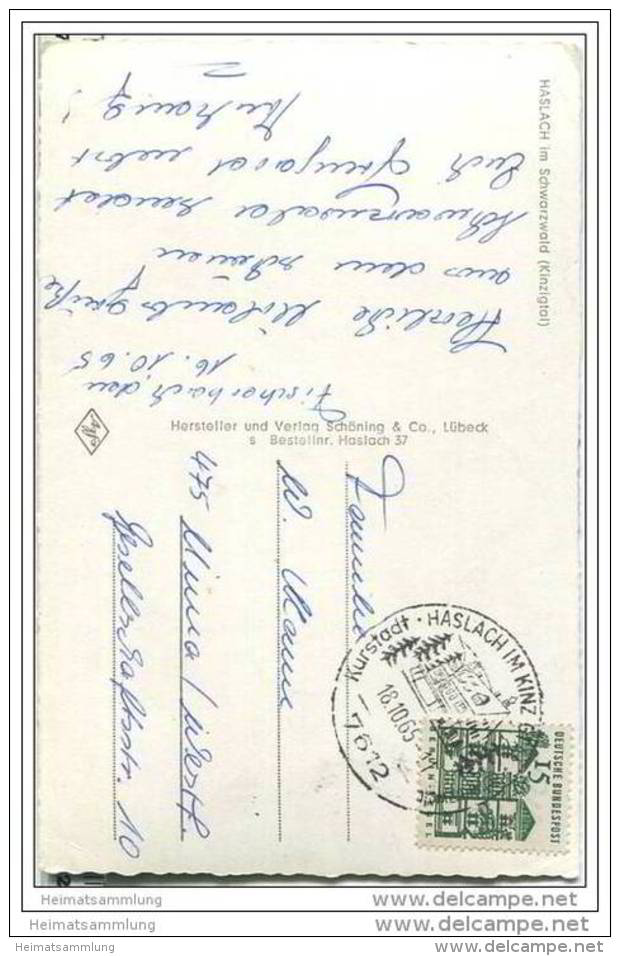 HASLACH im Schwarzwald (Kinzigtal)
Fischerbach, den
16.10.65
Herzliche Urlaubsgrüße
aus dem schönen
Schwarzwald sendet
Euch
nebst
Hersteller und Verlag Schöning & Co., Lübeck
s Bestellnr. Haslach 37
Familie
W.
475 Unna / Westf.
Gesellschaftsstr. 10
Kurstadt · HASLACH IM KINZIG
18.10.65
7612
15
DEUTSCHE BUNDESPOST
Heimatsammlung www.delcampe.net
Heimatsammlung www.delcampe.net
Heimatsammlung www.delcampe.net